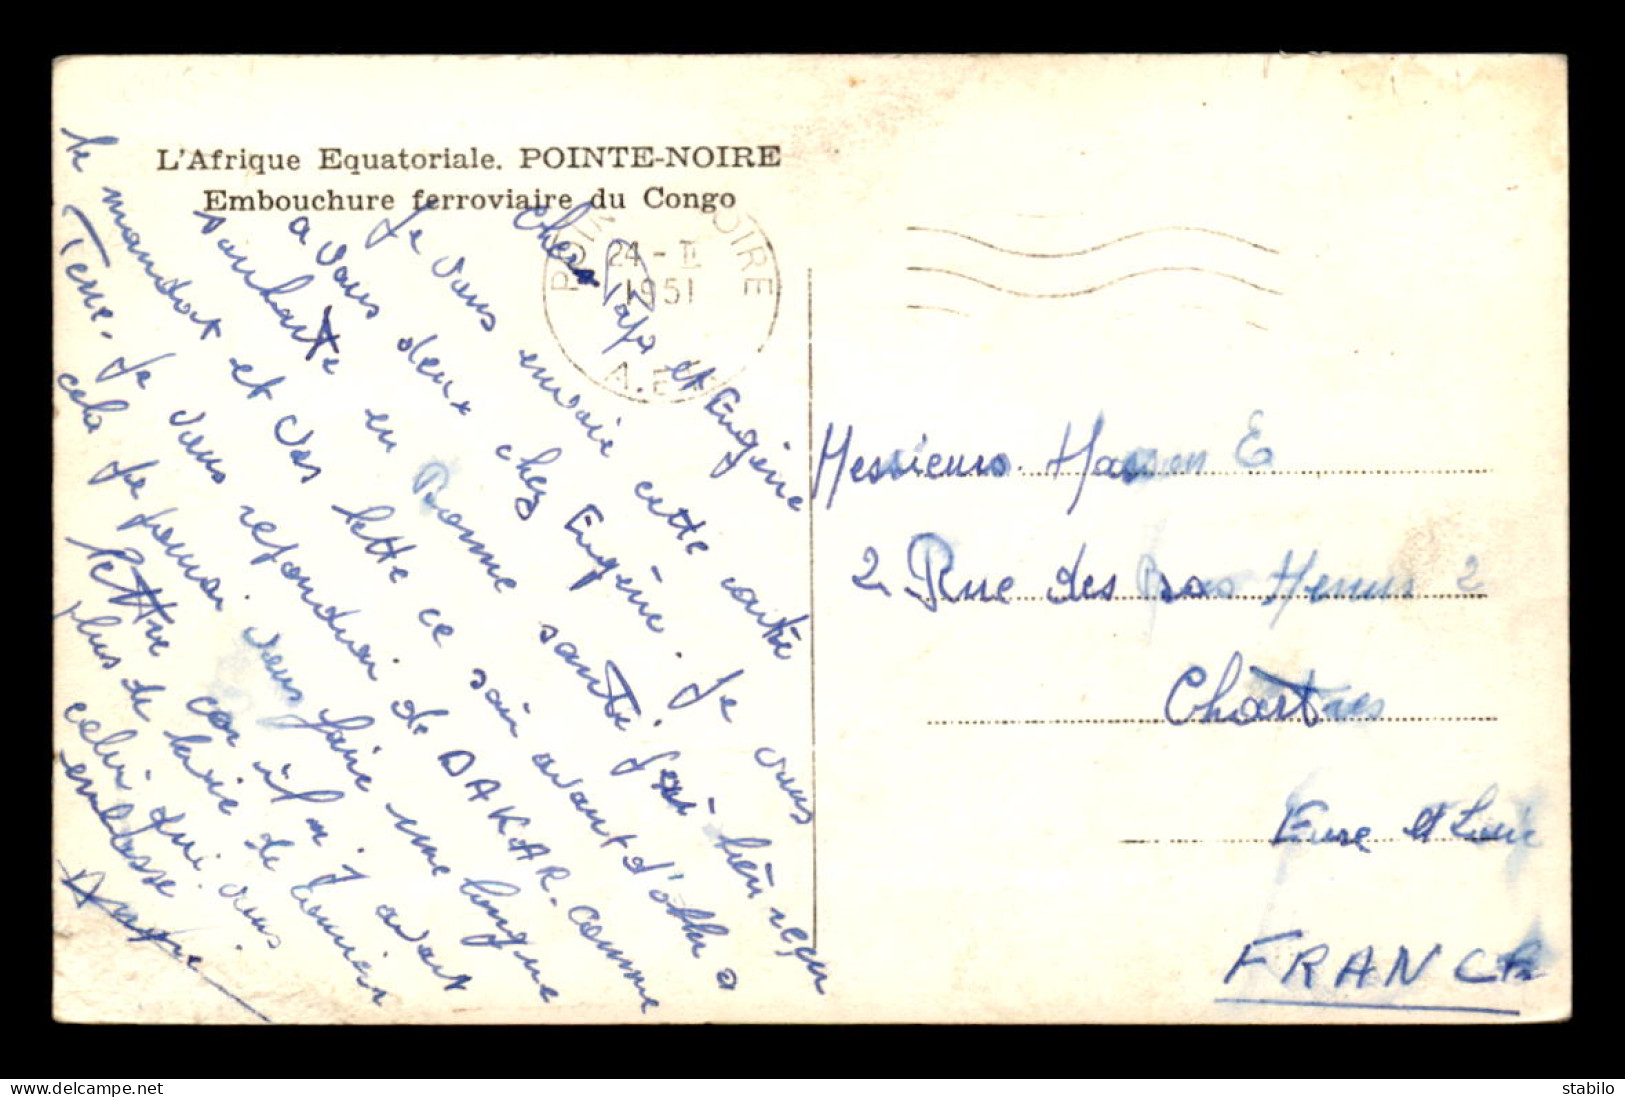 L'Afrique Equatoriale. POINTE-NOIRE
Embouchure ferroviaire du Congo
POINTE NOIRE
24 - II
1951
A.E.F
Chers Papa et Eugène
Je vous envoie cette carte
a vous deux chez Eugène. Je vous
souhaite en Bonne santé j'ai bien reçu
le mandat et vos lettre ce soir avant d'aller a
Terre. Je vous repondrai de DAKAR. comme
cela je pourrai vous faire une longue
lettre car il n'y avait
plus de la vie de dernier
celui qui vous
embrasse
André
Messieurs Masson E
2 Rue des Bas Menus 2
Chartres
Eure et Loir
FRANCE
stabilo
www.delcampe.net